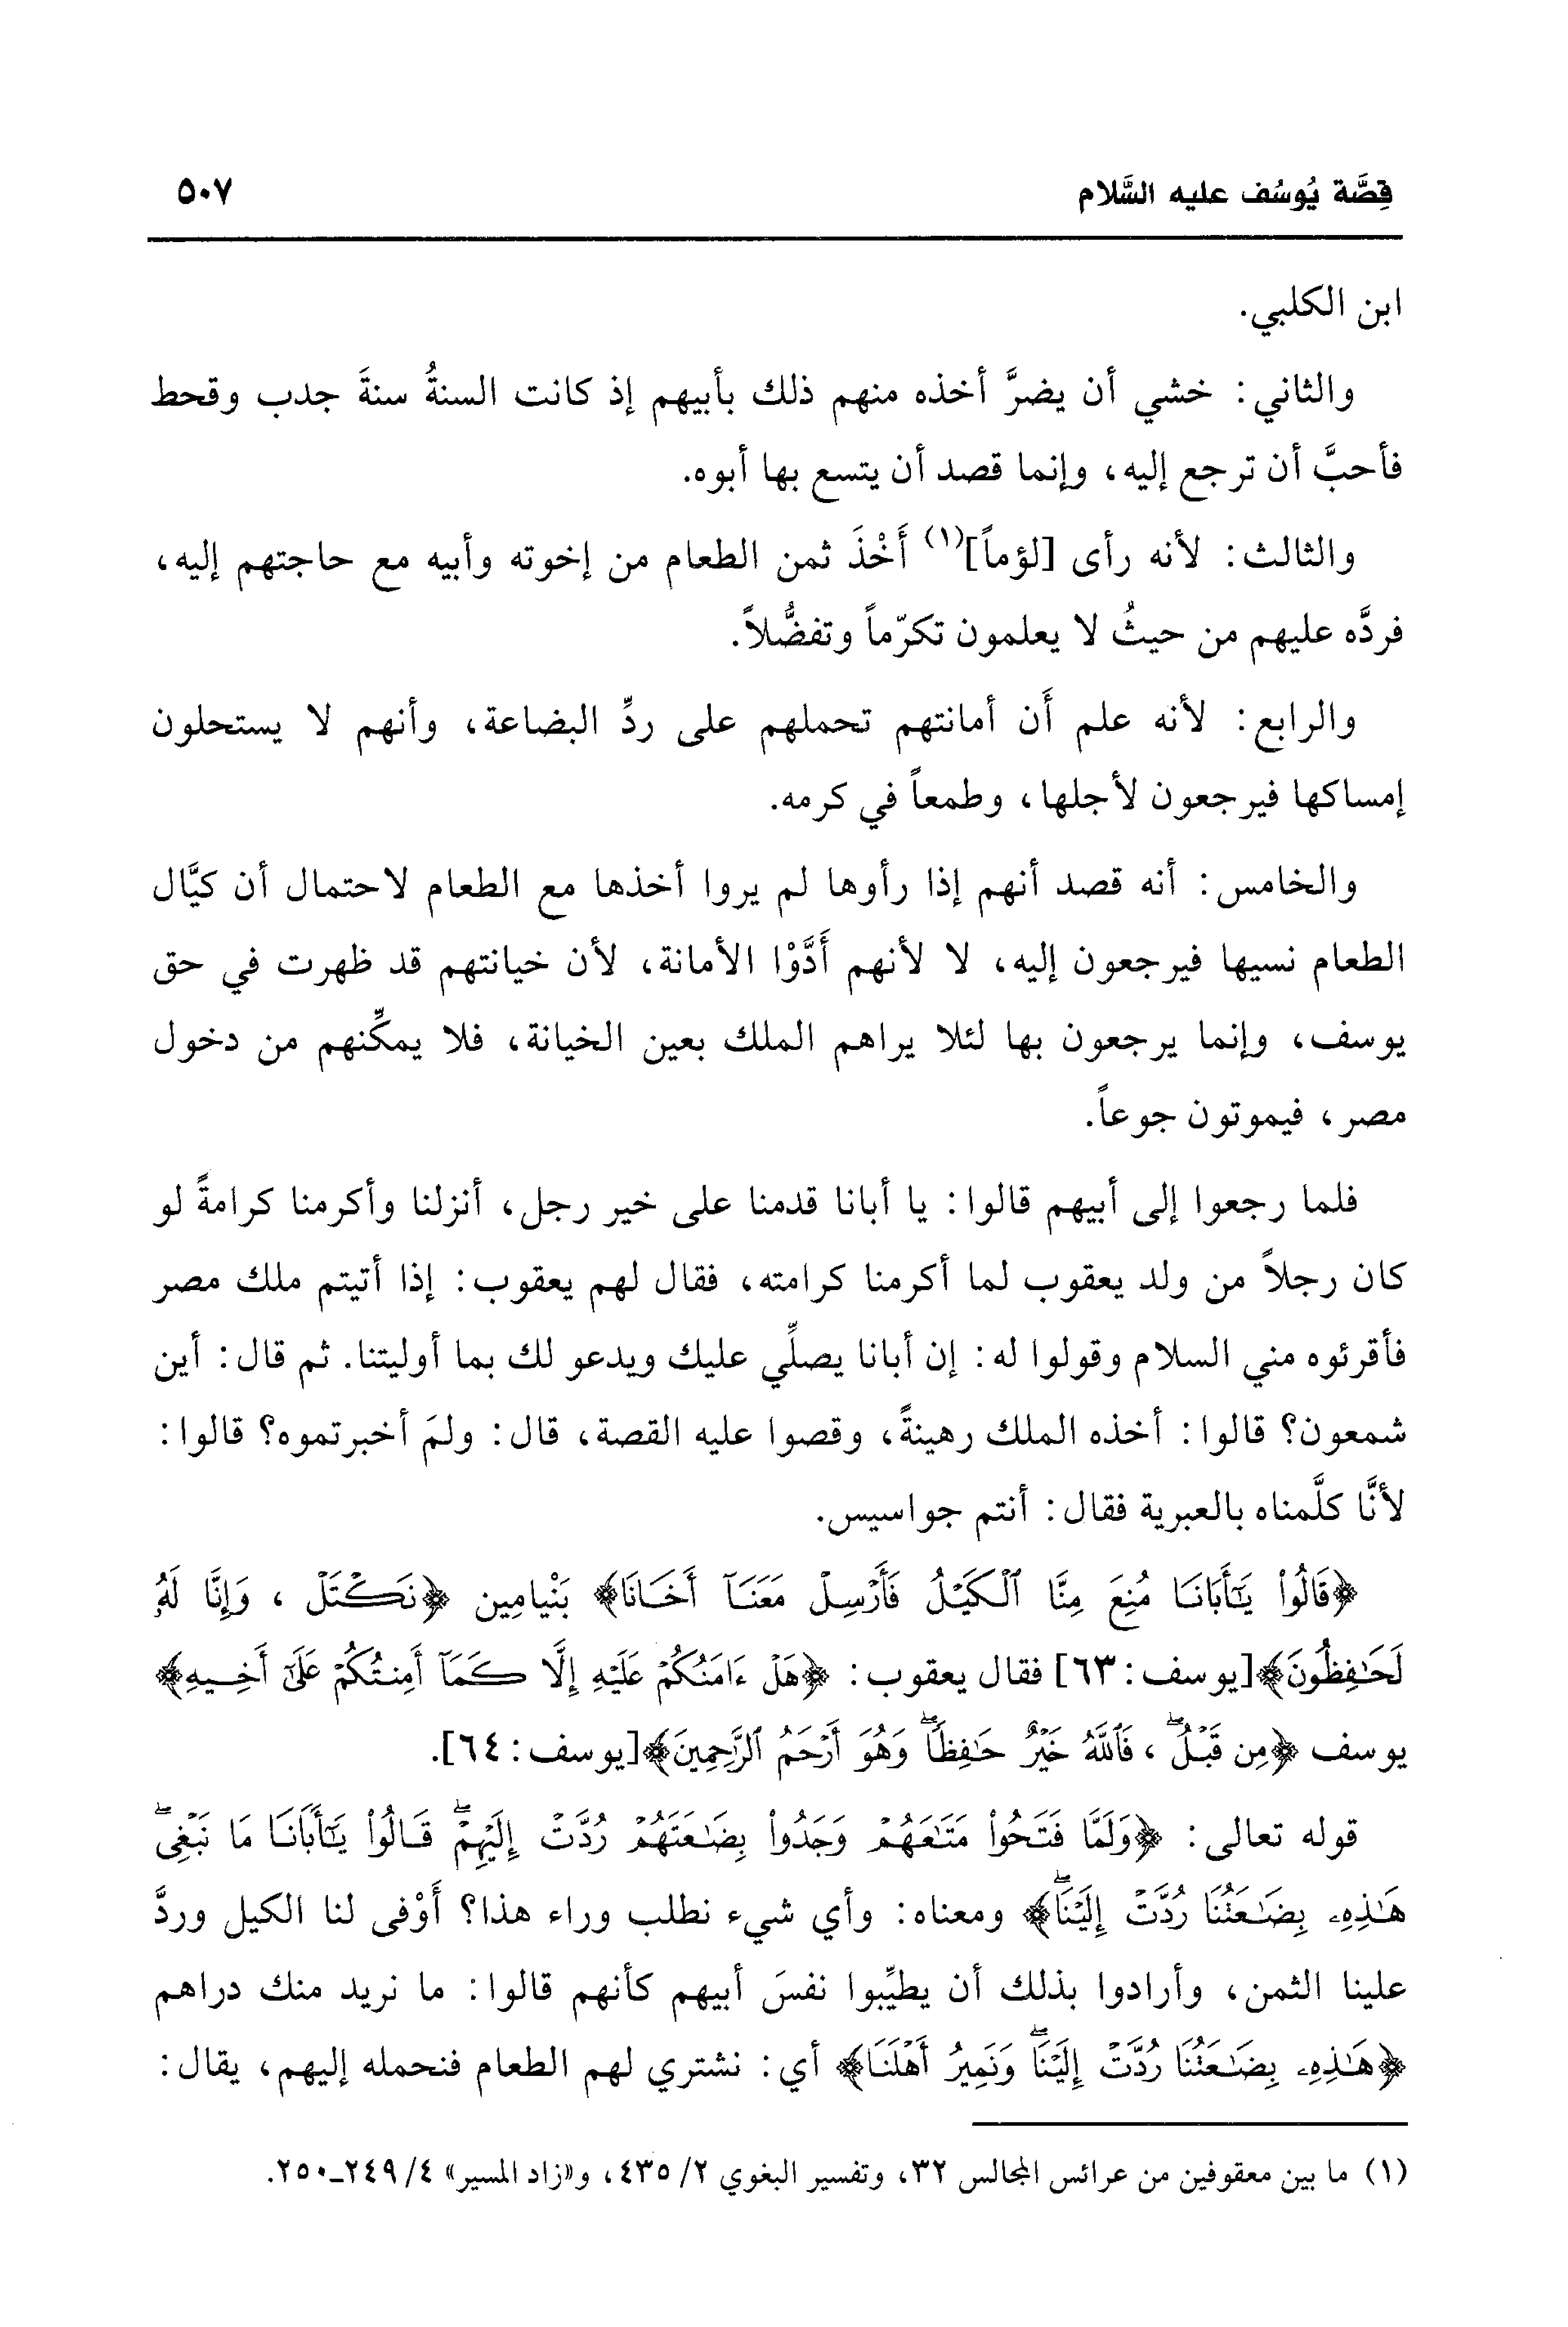 قِصَّة يُوسُف عليه السَّلام ٥٠٧
ابن الكلبي.
والثاني: خشي أن يضرَّ أخذه منهم ذلك بأبيهم إذ كانت السنةُ سنةَ جدب وقحط
فأحبَّ أن ترجع إليه، وإنما قصد أن يتسع بها أبوه.
والثالث: لأنه رأى [لؤماً](١) أَخْذَ ثمن الطعام من إخوته وأبيه مع حاجتهم إليه،
فردَّه عليهم من حيثُ لا يعلمون تكرّماً وتفضُّلاً.
والرابع: لأنه علم أَن أمانتهم تحملهم على ردِّ البضاعة، وأنهم لا يستحلون
إمساكها فيرجعون لأجلها، وطمعاً في كرمه.
والخامس: أنه قصد أنهم إذا رأوها لم يروا أخذها مع الطعام لاحتمال أن كيَّال
الطعام نسيها فيرجعون إليه، لا لأنهم أَدَّوْا الأمانة، لأن خيانتهم قد ظهرت في حق
يوسف، وإنما يرجعون بها لئلا يراهم الملك بعين الخيانة، فلا يمكِّنهم من دخول
مصر، فيموتون جوعاً.
فلما رجعوا إلى أبيهم قالوا: يا أبانا قدمنا على خير رجل، أنزلنا وأكرمنا كرامةً لو
كان رجلاً من ولد يعقوب لما أكرمنا كرامته، فقال لهم يعقوب: إذا أتيتم ملك مصر
فأقرئوه مني السلام وقولوا له: إن أبانا يصلِّي عليك ويدعو لك بما أوليتنا. ثم قال: أين
شمعون؟ قالوا: أخذه الملك رهينةً، وقصوا عليه القصة، قال: ولمَ أخبرتموه؟ قالوا:
لأنَّا كلَّمناه بالعبرية فقال: أنتم جواسيس.
﴿قَالُواْ يَٰٓأَبَانَا مُنِعَ مِنَّا ٱلۡكَيۡلُ فَأَرۡسِلۡ مَعَنَآ أَخَانَا﴾ بَنْيامِين ﴿نَكۡتَلۡ، وَإِنَّا لَهُۥ
لَحَٰفِظُونَ﴾[يوسف: ٦٣] فقال يعقوب: ﴿هَلۡ ءَامَنُكُمۡ عَلَيۡهِ إِلَّا كَمَآ أَمِنتُكُمۡ عَلَىٰٓ أَخِيهِ﴾
يوسف ﴿مِن قَبۡلُۖ، فَٱللَّهُ خَيۡرٌ حَٰفِظٗاۖ وَهُوَ أَرۡحَمُ ٱلرَّٰحِمِينَ﴾[يوسف: ٦٤].
قوله تعالى: ﴿وَلَمَّا فَتَحُواْ مَتَٰعَهُمۡ وَجَدُواْ بِضَٰعَتَهُمۡ رُدَّتۡ إِلَيۡهِمۡۖ قَالُواْ يَٰٓأَبَانَا مَا نَبۡغِيۖ
هَٰذِهِۦ بِضَٰعَتُنَا رُدَّتۡ إِلَيۡنَاۖ﴾ ومعناه: وأي شيء نطلب وراء هذا؟ أَوْفى لنا الكيل وردَّ
علينا الثمن، وأرادوا بذلك أن يطيِّبوا نفسَ أبيهم كأنهم قالوا: ما نريد منك دراهم
﴿هَٰذِهِۦ بِضَٰعَتُنَا رُدَّتۡ إِلَيۡنَاۖ وَنَمِيرُ أَهۡلَنَا﴾ أي: نشتري لهم الطعام فنحمله إليهم، يقال:
(١) ما بين معقوفين من عرائس المجالس ٣٢، وتفسير البغوي ٢/ ٤٣٥، و«زاد المسير» ٤/ ٢٤٩-٢٥٠.